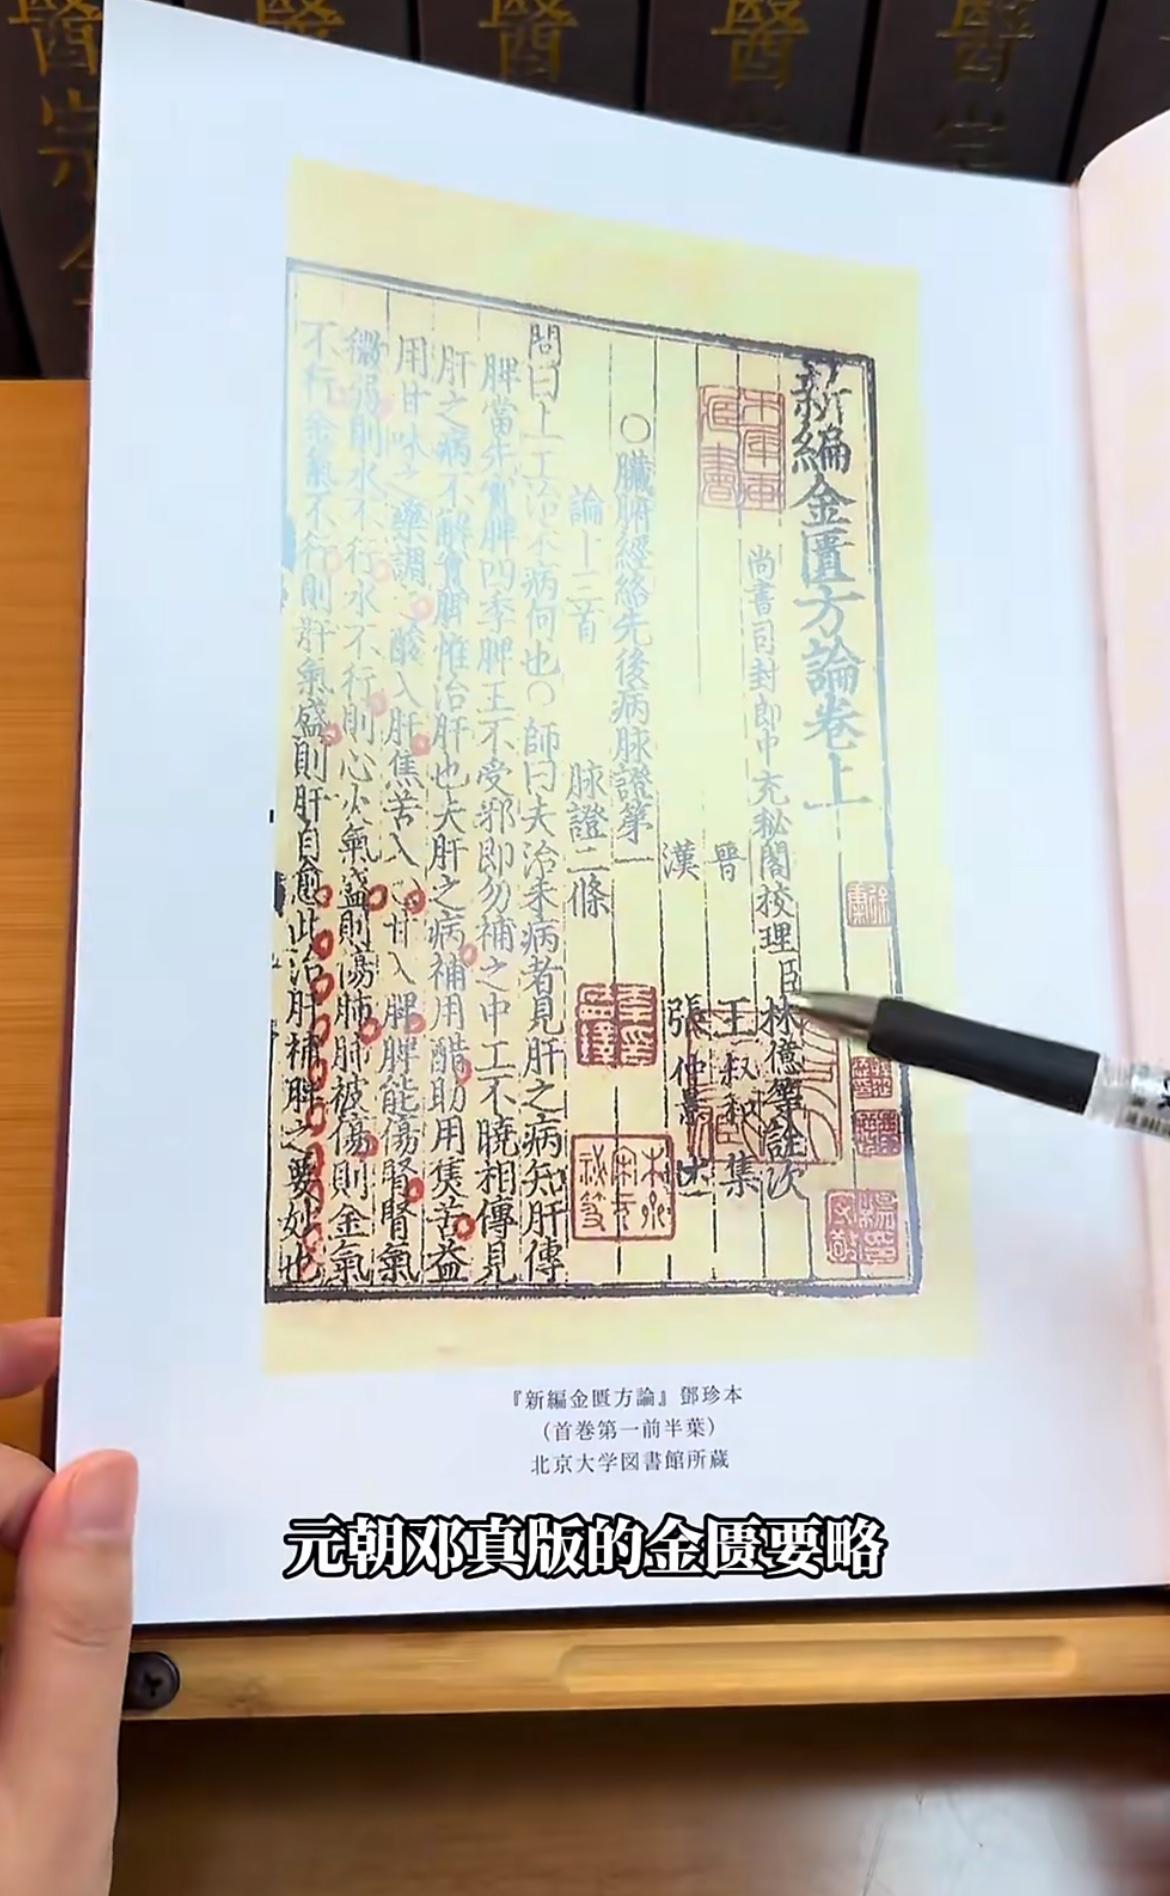 新編金匱方論卷上
尚書司封郎中充秘閣校理臣林億等詮次
晉王叔和集
漢張仲景述
〇臟腑經絡先後病脉證第一
論十三首 脉證二條
問曰上工治未病何也〇師曰夫治未病者見肝之病知肝傳
脾當先實脾四季脾王不受邪即勿補之中工不曉相傳見
肝之病不解實脾惟治肝也夫肝之病補用酸助用焦苦益
用甘味之藥調之酸入肝焦苦入心甘入脾脾能傷腎腎氣
微弱則水不行水不行則心火氣盛則傷肺肺被傷則金氣
不行金氣不行則肝氣盛則肝自愈此治肝補脾之要妙也
『新編金匱方論』鄧珍本
(首巻第一前半葉)
北京大学図書館所蔵
元朝邓真版的金匮要略